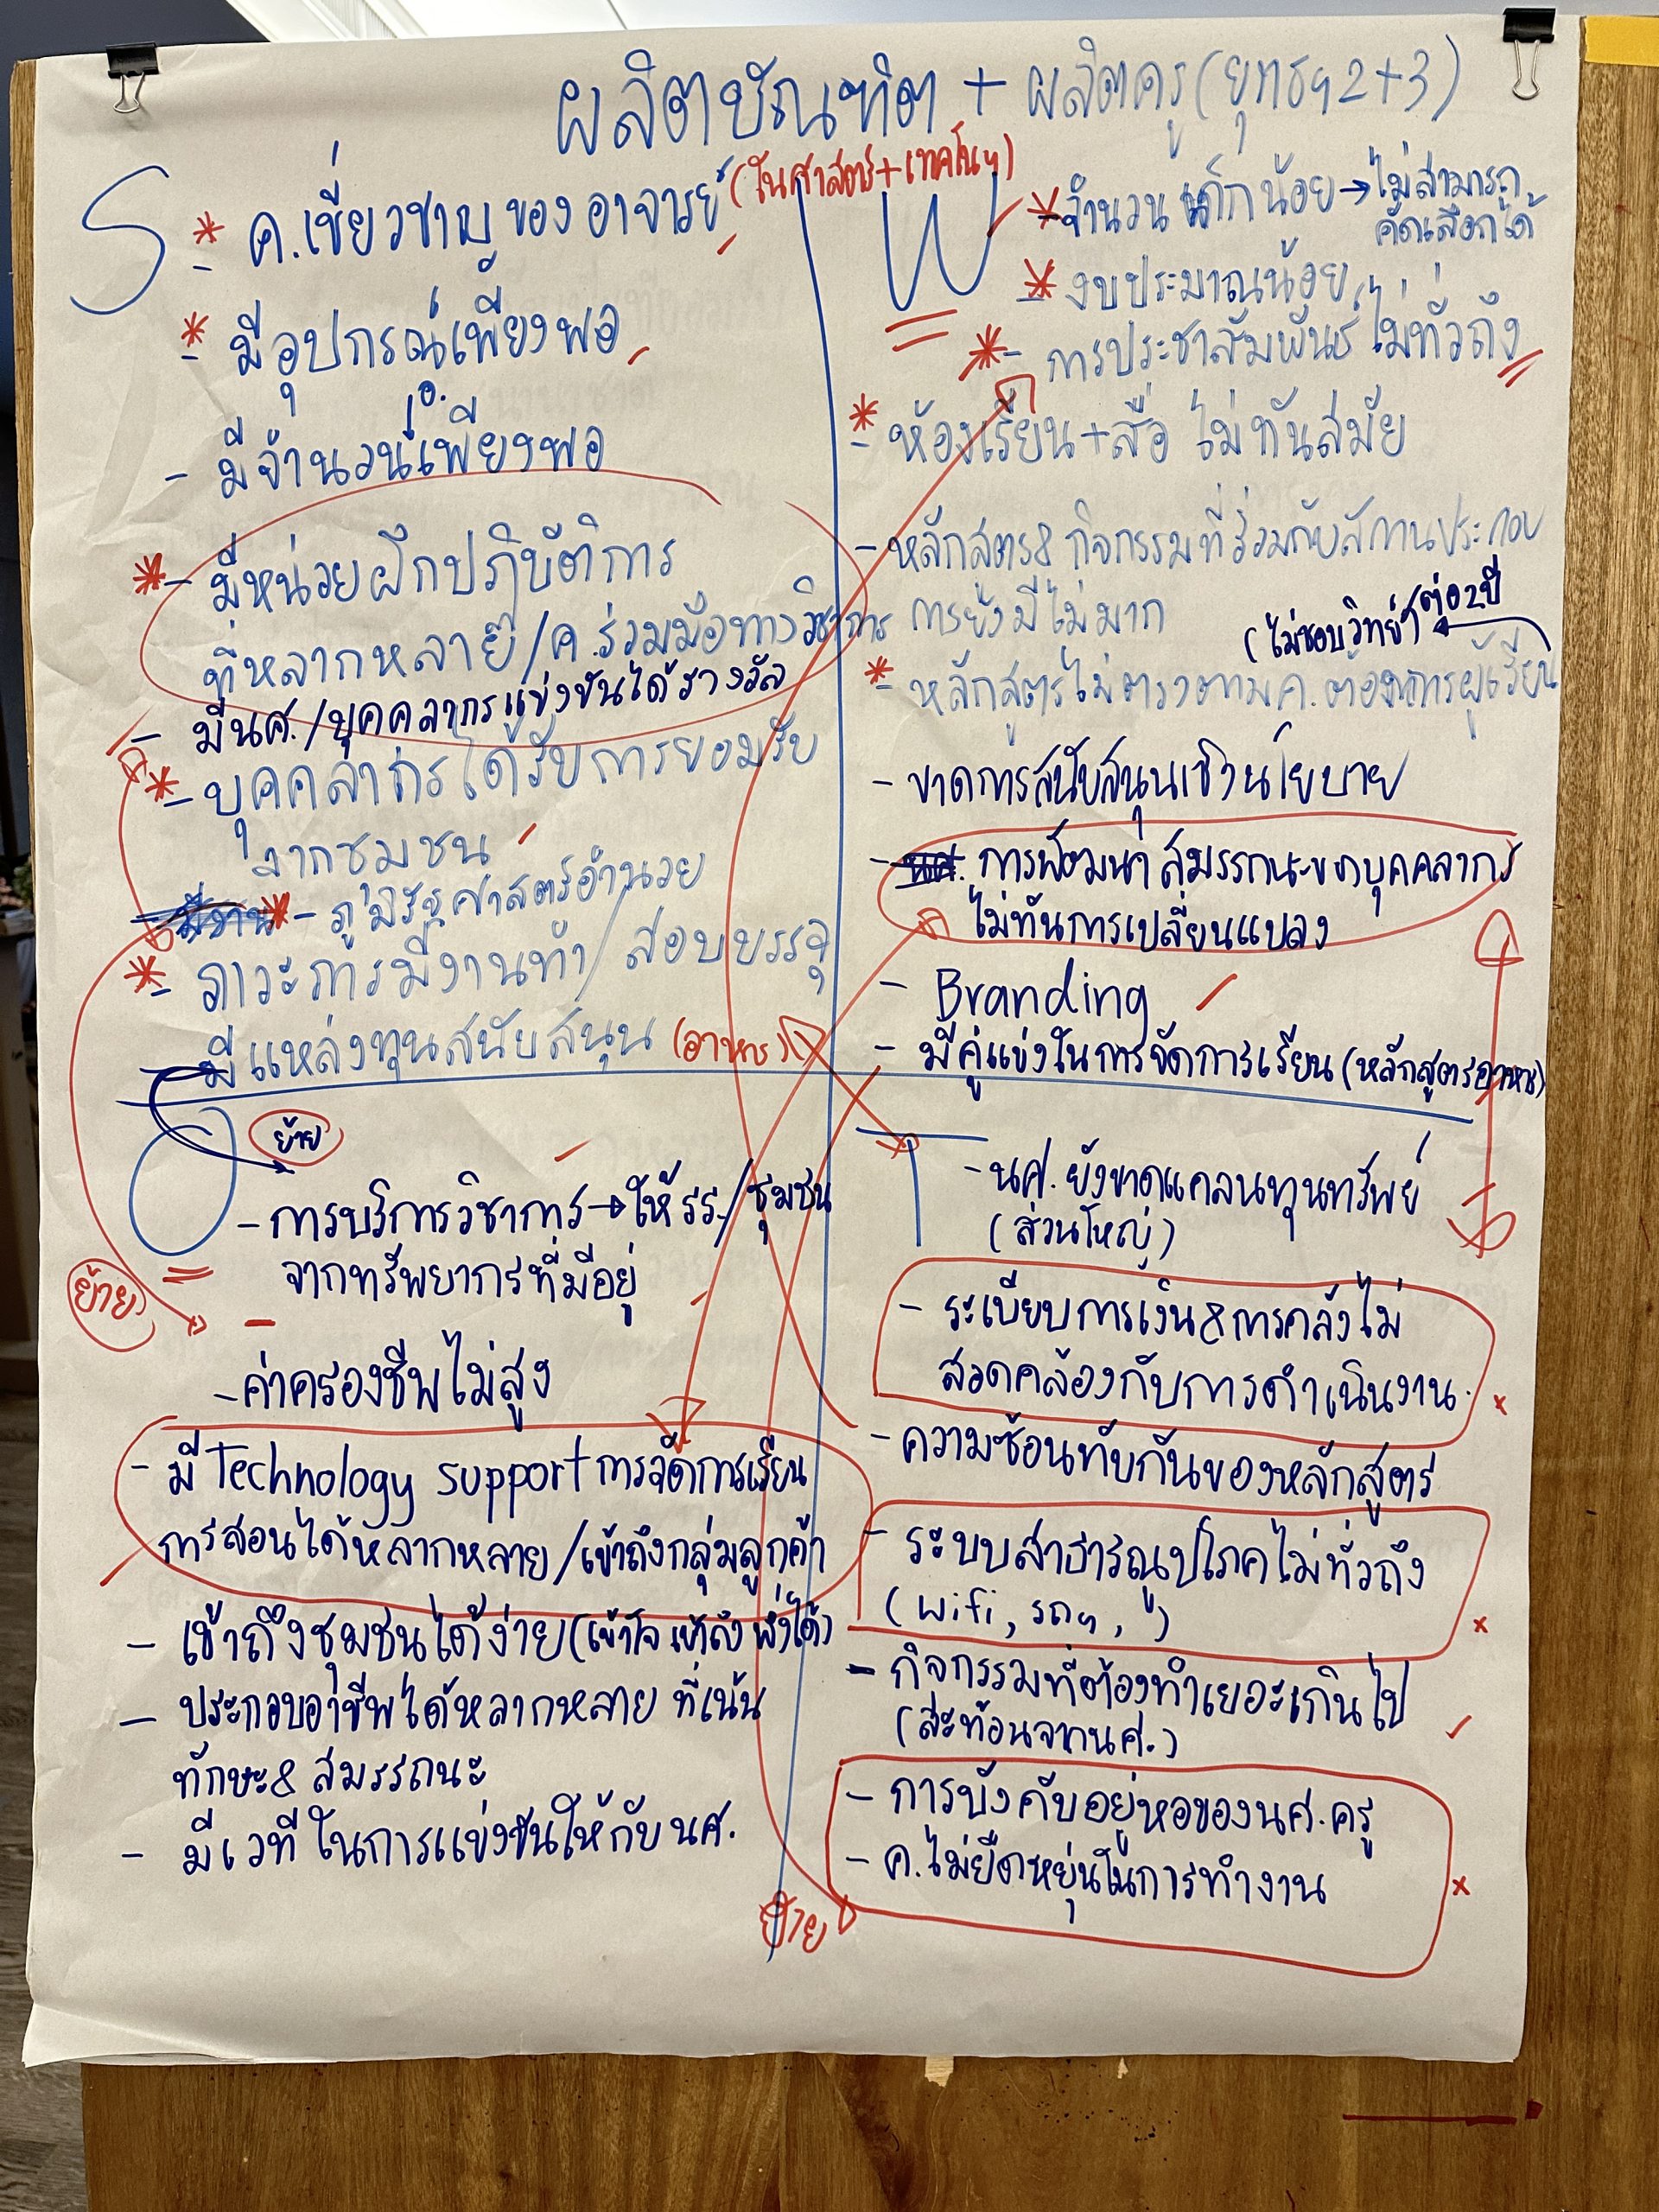 ผลิตบัณฑิต + ผลิตครู (ยุทธฯ 2+3)
S
* - ค.เชี่ยวชาญของอาจารย์ (ในศาสตร์+เทคโนฯ)
* - มีอุปกรณ์เพียงพอ
- มีจำนวน อ. เพียงพอ
* - มีหน่วยฝึกปฏิบัติการ
ที่หลากหลาย/ค.ร่วมมือทางวิชาการ
- มีนศ./บุคคลากรแข่งขันได้รางวัล
* - บุคคลากรได้รับการยอมรับ
จากชุมชน
* - ภูมิรัฐศาสตร์อำนวย
* - ภาวะการมีงานทำ/สอบบรรจุ
- มีแหล่งทุนสนับสนุน (อาหาร)
W
* - จำนวนเด็กน้อย → ไม่สามารถ
คัดเลือกได้
* - งบประมาณน้อย
* - การประชาสัมพันธ์ไม่ทั่วถึง
* - ห้องเรียน+สื่อ ไม่ทันสมัย
- หลักสูตร& กิจกรรมที่ร่วมกับสถานประกอบ
การยังมีไม่มาก
(ไม่ชอบวิทย์ฯ) ตู่อ2ปี
* - หลักสูตรไม่ตรงตามค.ต้องการผู้เรียน
- ขาดการสนับสนุนเชิงนโยบาย
- การพัฒนาสมรรถนะของบุคคลากร
ไม่ทันการเปลี่ยนแปลง
- Branding
- มีคู่แข่งในการจัดการเรียน (หลักสูตรอาหาร)
O
ย้าย
- การบริการวิชาการ → ให้ รร./ชุมชน
จากทรัพยากรที่มีอยู่
ย้าย
- ค่าครองชีพไม่สูง
- มี Technology support การจัดการเรียน
การสอนได้หลากหลาย/เข้าถึงกลุ่มลูกค้า
- เข้าถึงชุมชนได้ง่าย (เข้าใจ เข้าถึง พึ่งได้)
- ประกอบอาชีพได้หลากหลาย ที่เน้น
ทักษะ& สมรรถนะ
- มีเวทีในการแข่งขันให้กับนศ.
T
- นศ. ยังขาดแคลนทุนทรัพย์
(ส่วนใหญ่)
- ระเบียบการเงิน&การคลังไม่
สอดคล้องกับการดำเนินงาน.
- ความซ้อนทับกันของหลักสูตร
- ระบบสาธารณูปโภคไม่ทั่วถึง
(wifi, รถฯ, )
- กิจกรรมที่ต้องทำเยอะเกินไป
(สะท้อนจากนศ.)
- การบังคับอยู่หอของนศ.ครู
- ค.ไม่ยืดหยุ่นในการทำงาน
ย้าย